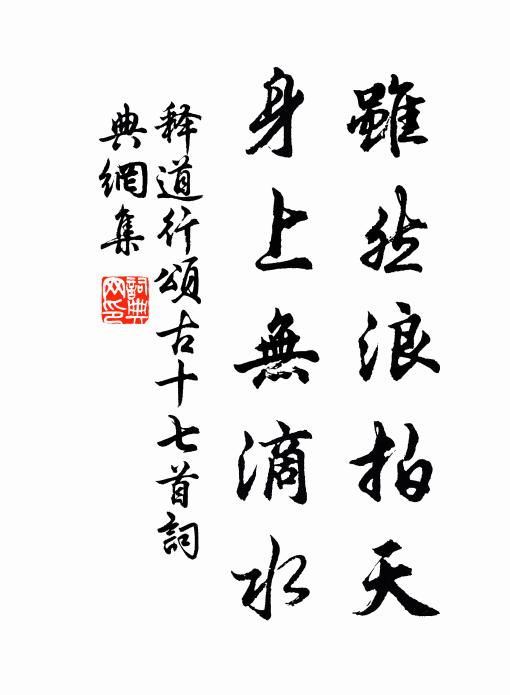 雖然浪拍天
身上無滴水
释道行頌古十七首詞
典網集
詞典
网印